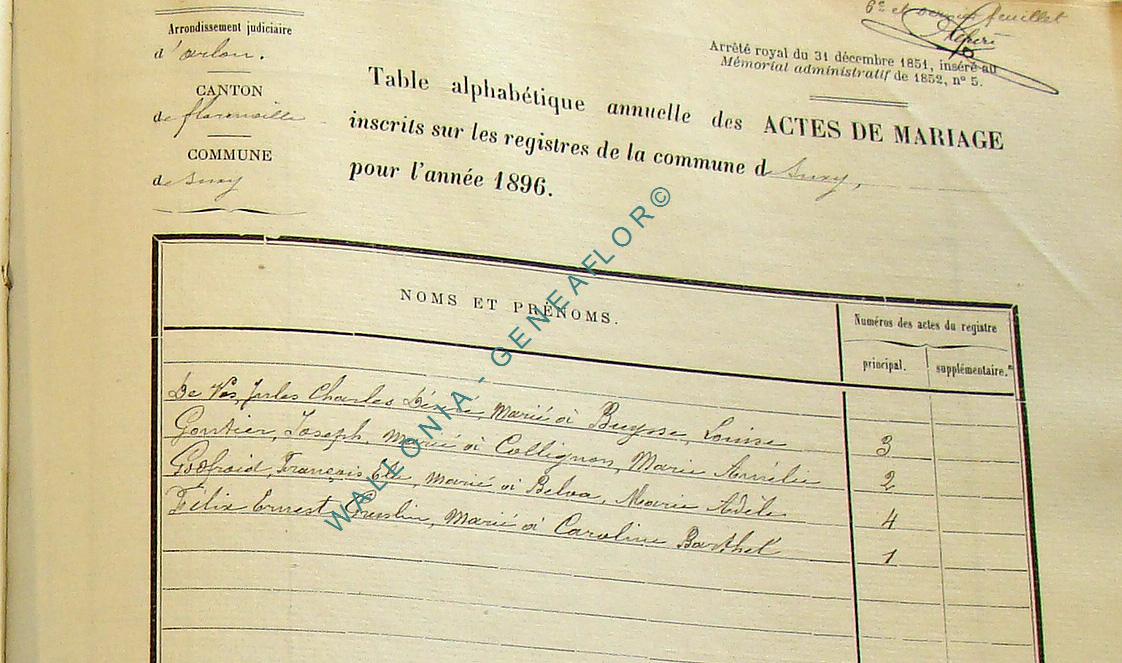 6e et dernier feuillet
Arrondissement judiciaire
d'arlon.
CANTON
de florenville
COMMUNE
de Suxy
Arrêté royal du 31 décembre 1851, inséré au
Mémorial administratif de 1852, n° 5.
Table alphabétique annuelle des ACTES DE MARIAGE
inscrits sur les registres de la commune de Suxy,
pour l'année 1896.
NOMS ET PRÉNOMS.
Numéros des actes du registre
principal. supplémentaire.
De Vos, Jules Charles Désiré, Marié à Buysse, Louise 3
Gontier, Joseph, Marié à Collignon, Marie Amélie 2
Godfroid, François, Marié à Belva, Marie Adèle 4
Félix Ernest, Marié à Caroline Barthel 1
WALLONIA - GENEAFLOR©